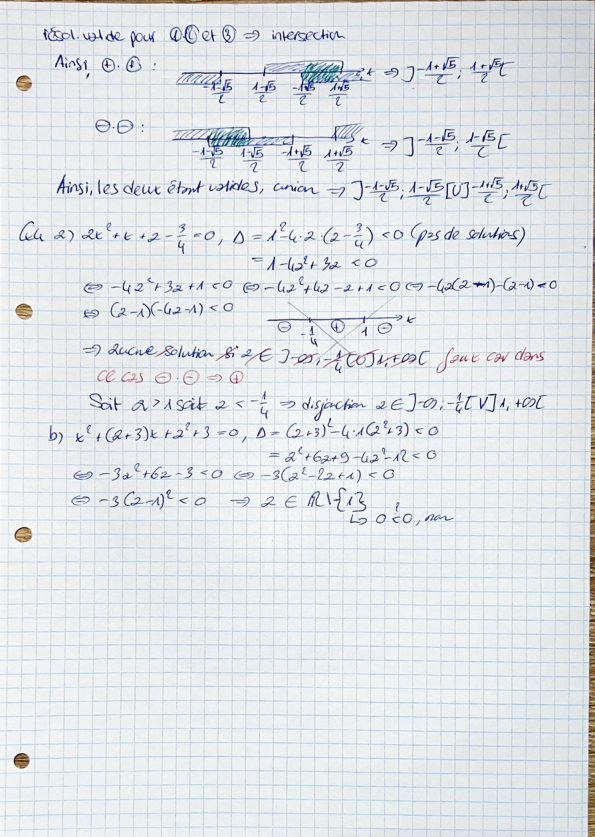 résol. valide pour ① ② et ③ ⇒ intersection
Ainsi, ⊕·⊕ : x ⇒ ]-1+√5/2 ; 1+√5/2[
-1-√5/2 1-√5/2 -1+√5/2 1+√5/2
⊖·⊖ : x ⇒ ]-1-√5/2 ; 1-√5/2[
-1-√5/2 1-√5/2 -1+√5/2 1+√5/2
Ainsi, les deux étant valides, union ⇒ ]-1-√5/2 ; 1-√5/2[U]-1+√5/2 ; 1+√5/2[
a) ax²+x+a-3/4=0, Δ=1²-4·a·(a-3/4)<0 (pas de solutions)
=1-4a²+3a <0
⇔ -4a²+3a+1<0 ⇔ -4a²+4a-a+1<0 ⇔ -4a(a-1)-(a-1)<0
⇔ (a-1)(-4a-1)<0
⊖ -1/4 ⊕ 1 ⊖ x
⇒ aucune solution si a ∈ ]-∞; -1/4[U]1; +∞[ faux car dans
ce cas ⊖·⊖ ⇒ ⊕
Soit a>1 soit a<-1/4 ⇒ disjonction a∈]-∞; -1/4[V]1; +∞[
b) x²+(a+3)x+a²+3=0, Δ=(a+3)²-4·1(a²+3)<0
=a²+6a+9-4a²-12<0
⇔ -3a²+6a-3<0 ⇔ -3(a²-2a+1)<0
⇔ -3(a-1)²<0 ⇒ a ∈ ℝ\{1}
↳ 0<0, non